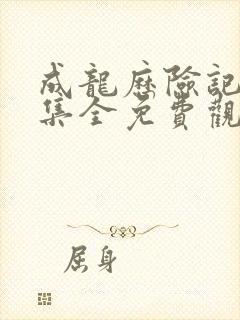 成龍歷險記
集全免費觀
屈身